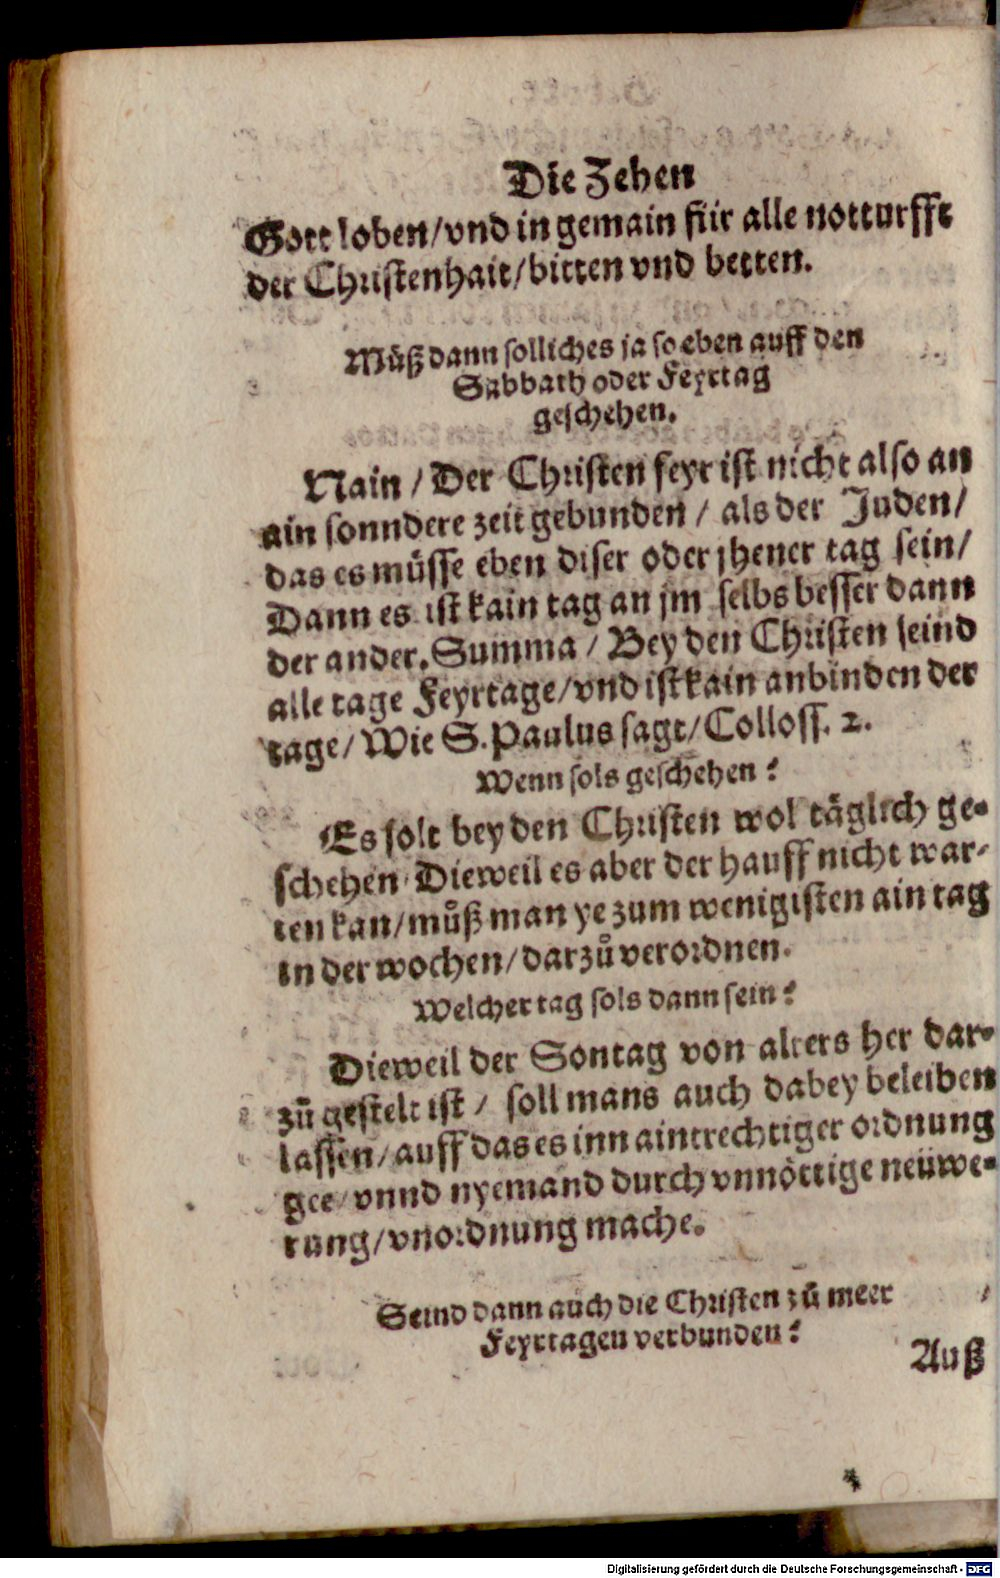 Die Zehen
Gott loben/vnd in gemain für alle notturfft
der Christenhait/bitten vnd betten.
Müß dann solliches ja so eben auff den
Sabbath oder Feyrtag
geschehen.
Nain / Der Christen feyr ist nicht also an
ain sonndere zeit gebunden / als der Juden/
das es müsse eben diser oder jhener tag sein/
Dann es ist kain tag an jm selbs besser dann
der ander. Summa / Bey den Christen seind
alle tage Feyrtage/vnd ist kain anbinden der
tage/ Wie S. Paulus sagt/ Colloss. 2.
Wenn sols geschehen?
Es solt bey den Christen wol täglich ge-
schehen/ Dieweil es aber der hauff nicht war-
ten kan/můß man ye zum wenigisten ain tag
in der wochen/darzů verordnen.
Welcher tag sols dann sein?
Dieweil der Sontag von alters her dar-
zů gestelt ist / soll mans auch dabey beleiben
lassen/auff das es inn aintrechtiger ordnung
gee/vnnd nyemand durch vnnöttige neüwe-
rung/vnordnung mache.
Seind dann auch die Christen zů meer
Feyrtagen verbunden?
Auß
Digitalisierung gefördert durch die Deutsche Forschungsgemeinschaft - DFG